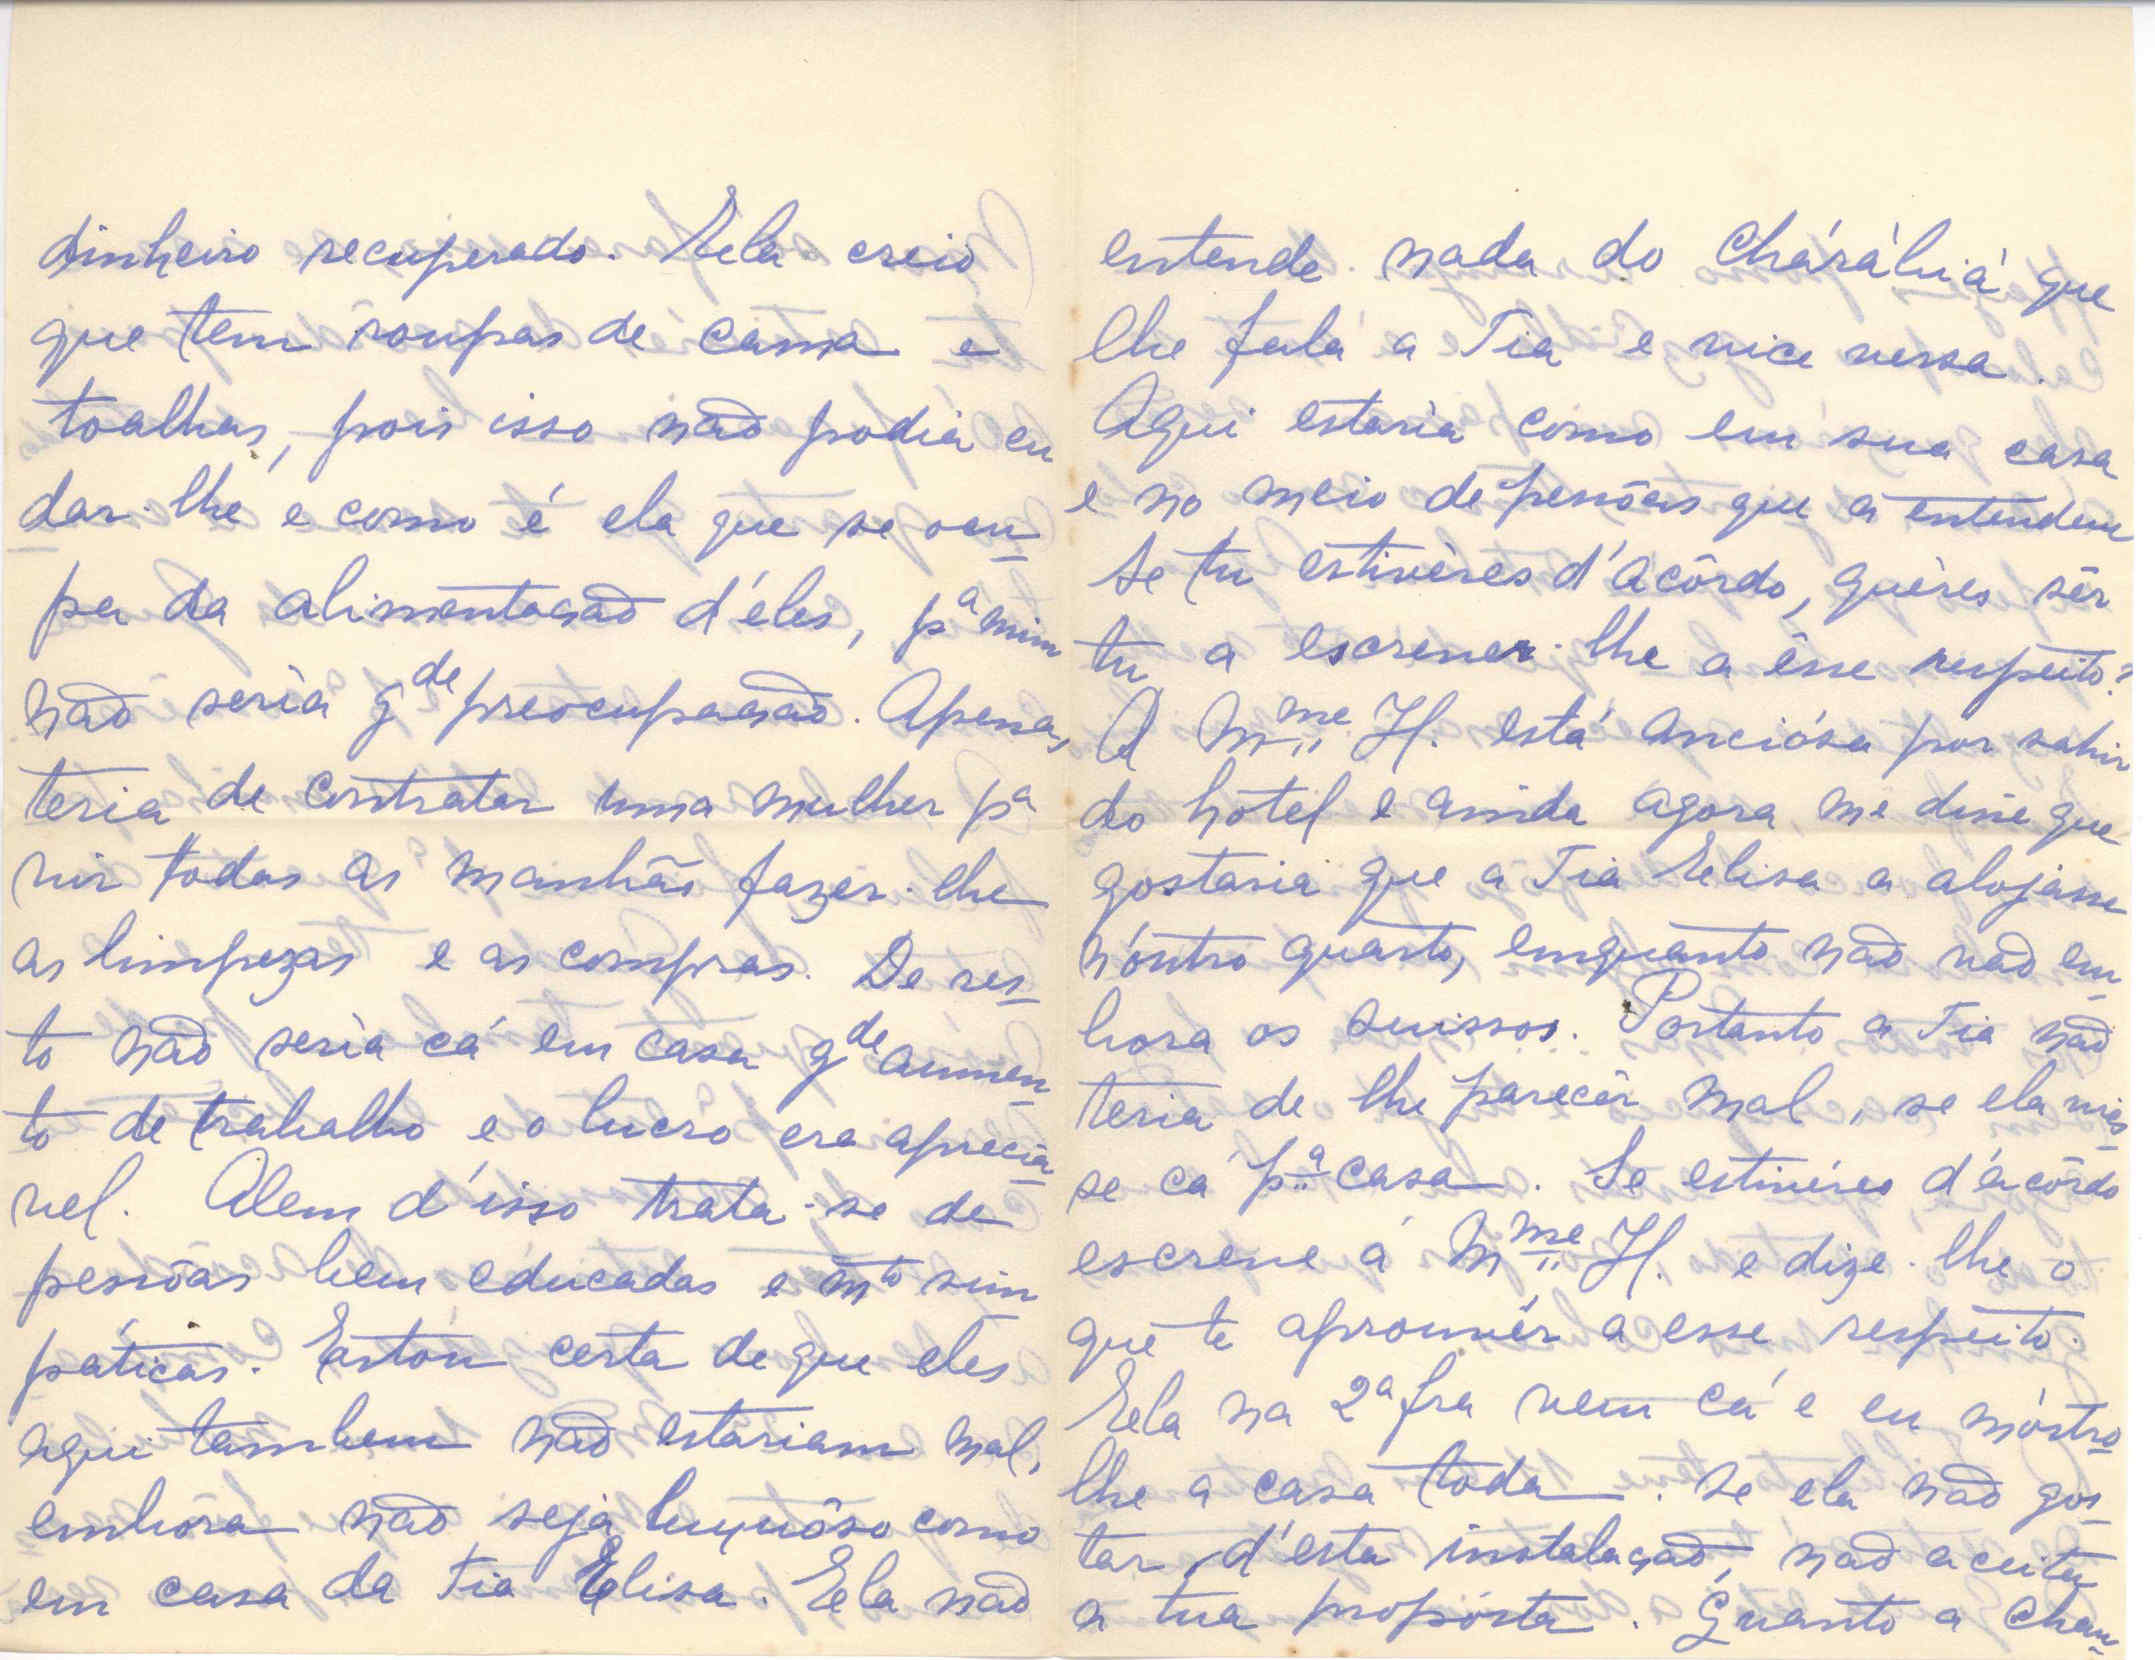 dinheiro recuperado. Ela creio
que tem roupas de cama e
toalhas, pois isso não podia eu
dar-lhe e como é ela que se ocu-
pa da alimentação d'eles, pª mim
não seria gde preocupação. Apenas
teria de contratar uma mulher pª
vir todas as manhãs fazer-lhe
as limpezas e as compras. De res-
to não seria cá em casa gde aumen-
to de trabalho e o lucro era apreciá-
vel. Alem d'isso trata-se de
pessôas bem educadas e mto sim-
páticas. Estou certa de que eles
aqui tambem não estariam mal,
embora não seja luxuôso como
em casa da Tia Elisa. Ela não
entende nada do chárábiá que
lhe fala a Tia e vice versa.
Aqui estaria como em sua casa
e no meio de pessôas que a entendem
Se tu estivéres d'acôrdo, quéres sêr
tu a escrever-lhe a êsse respeito?
A Mme H. está anciósa por sahir
do hotel e ainda agora me disse que
gostaria que a Tia Elisa a alojasse
n'outro quarto, emquanto não vão em-
bora os suissos. Portanto a Tia não
teria de lhe parecêr mal, se ela vies-
se cá pª casa. Se estivéres d'acôrdo
escreve á Mme H. e dize-lhe o
que te aprouvér a esse respeito.
Ela na 2ª fra vem cá e eu móstro-
lhe a casa toda. Se ela não gos-
tar d'esta instalação, não aceita
a tua propósta. Quanto a cham-